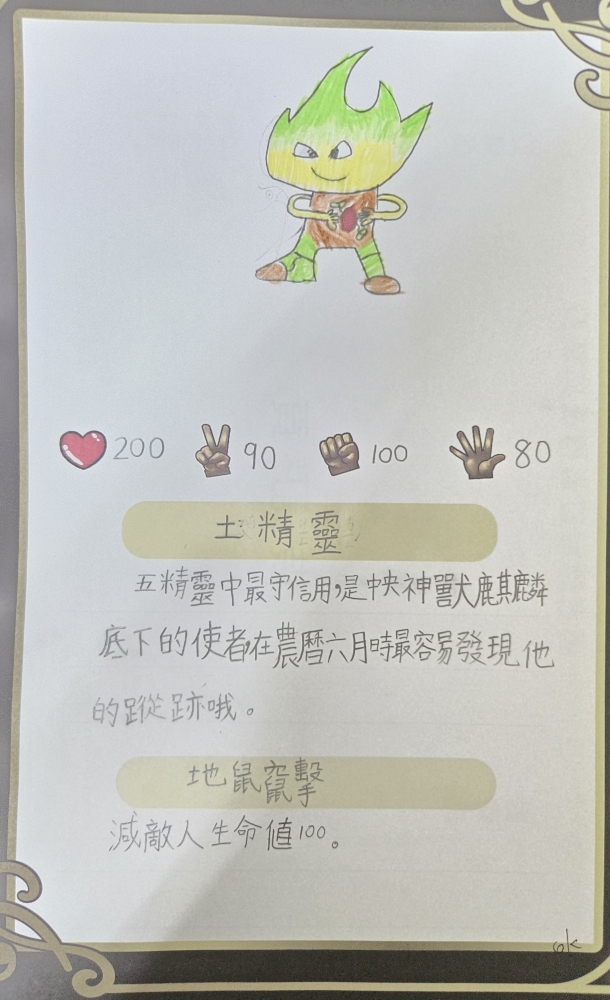 200 90 100 80
土精靈
五精靈中最守信用,是中央神獸麒麟
底下的使者,在農曆六月時最容易發現他
的蹤跡哦。
地鼠竄擊
減敵人生命值100。
ok